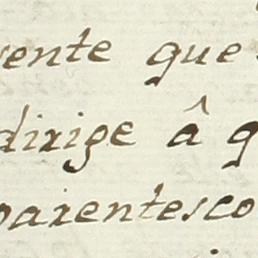 vente que
dirige â q
parentesco